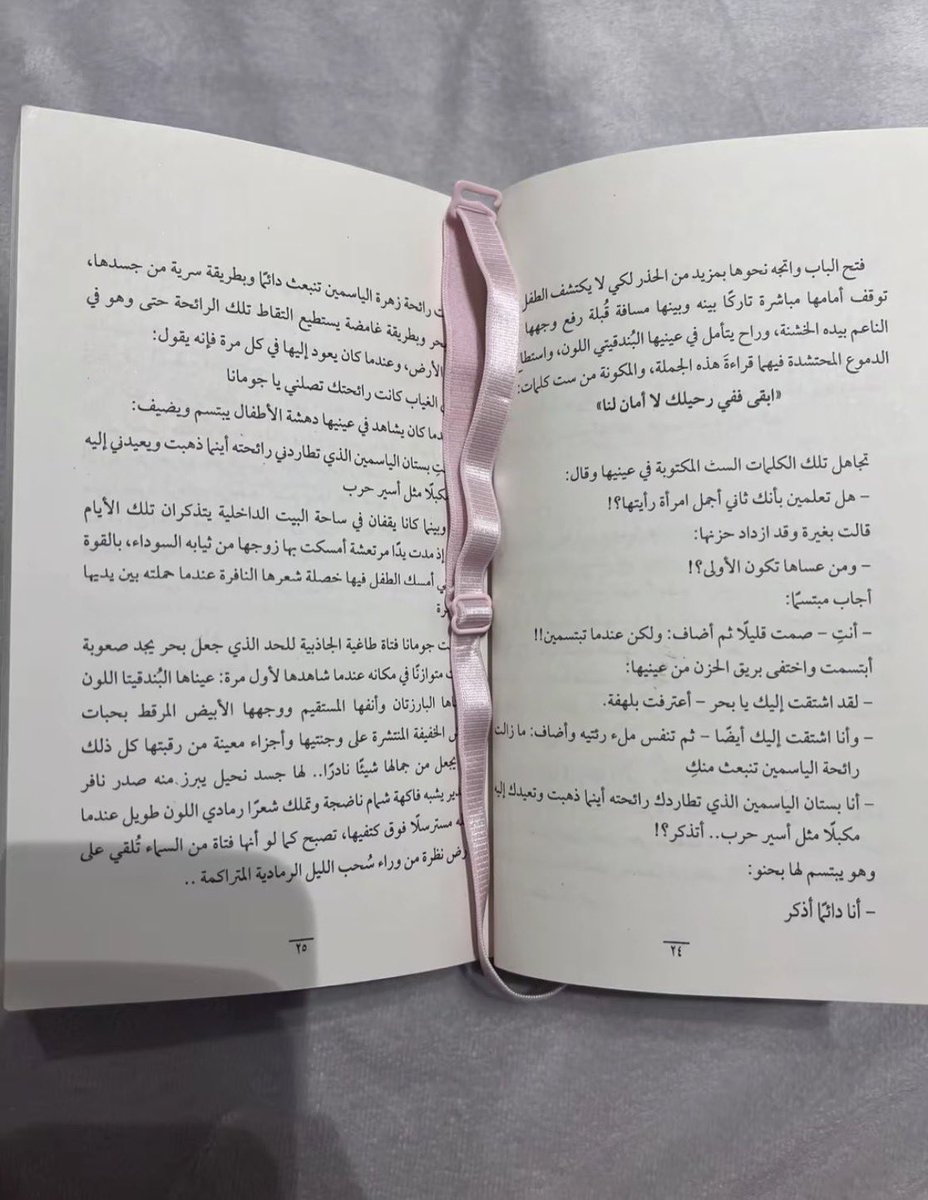 فتح الباب واتجه نحوها بمزيد من الحذر لكي لا يكتشف الطفل
توقف أمامها مباشرة تاركًا بينه وبينها مسافة قُبلة رفع وجهها
الناعم بيده الخشنة، وراح يتأمل في عينيها البُندقيتي اللون، واستطا
الدموع المحتشدة فيهما قراءةَ هذه الجملة، والمكونة من ست كلمات:
«ابقى ففي رحيلك لا أمان لنا»
تجاهل تلك الكلمات الست المكتوبة في عينيها وقال:
– هل تعلمين بأنك ثاني أجمل امرأة رأيتها؟!
قالت بغيرة وقد ازداد حزنها:
– ومن عساها تكون الأولى؟!
أجاب مبتسمًا:
– أنتِ – صمت قليلًا ثم أضاف: ولكن عندما تبتسمين!!
أبتسمت واختفى بريق الحزن من عينيها:
– لقد اشتقت إليك يا بحر – أعترفت بلهفة.
– وأنا اشتقت إليك أيضًا – ثم تنفس ملء رئتيه وأضاف: ما زالت
رائحة الياسمين تنبعث منكِ
– أنا بستان الياسمين الذي تطاردك رائحته أينما ذهبت وتعيدك إليه
مكبلًا مثل أسير حرب.. أتذكر؟!
وهو يبتسم لها بحنو:
– أنا دائمًا أذكر
٢٤
رائحة زهرة الياسمين تنبعث دائمًا وبطريقة سرية من جسدها،
وبطريقة غامضة يستطيع التقاط تلك الرائحة حتى وهو في
الأرض، وعندما كان يعود إليها في كل مرة فإنه يقول:
الغياب كانت رائحتك تصلني يا جومانا
كان يشاهد في عينيها دهشة الأطفال يبتسم ويضيف:
بستان الياسمين الذي تطاردني رائحته أينما ذهبت ويعيدني إليه
مكبلًا مثل أسير حرب
وبينما كانا يقفان في ساحة البيت الداخلية يتذكران تلك الأيام
إذ مدت يدًا مرتعشة أمسكت بها زوجها من ثيابه السوداء، بالقوة
أمسك الطفل فيها خصلة شعرها النافرة عندما حملته بين يديها
رة
جومانا فتاة طاغية الجاذبية للحد الذي جعل بحر يجد صعوبة
متوازنًا في مكانه عندما شاهدها لأول مرة: عيناها البُندقيتا اللون
البارزتان وأنفها المستقيم ووجهها الأبيض المرقط بحبات
الخفيفة المنتشرة على وجنتيها وأجزاء معينة من رقبتها كل ذلك
يجعل من جمالها شيئًا نادرًا.. لها جسد نحيل يبرز منه صدر نافر
يشبه فاكهة شمام ناضجة وتملك شعرًا رمادي اللون طويل عندما
مسترسلًا فوق كتفيها، تصبح كما لو أنها فتاة من السماء تُلقي على
نظرة من وراء سُحب الليل الرمادية المتراكمة ..
٢٥